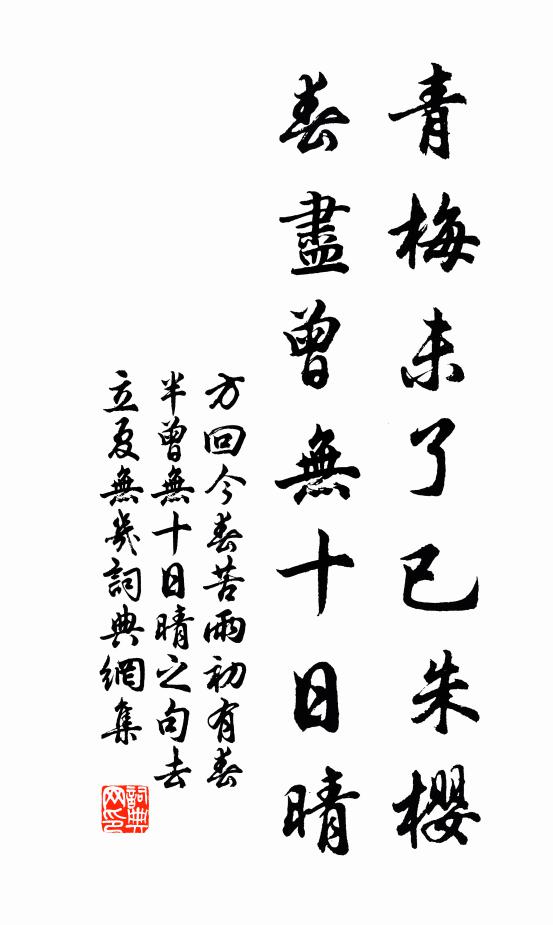 青梅未了已朱櫻
春盡曾無十日晴
方回今春苦雨初有春
半曾無十日晴之句去
立夏無幾詞典網集
詞典网印